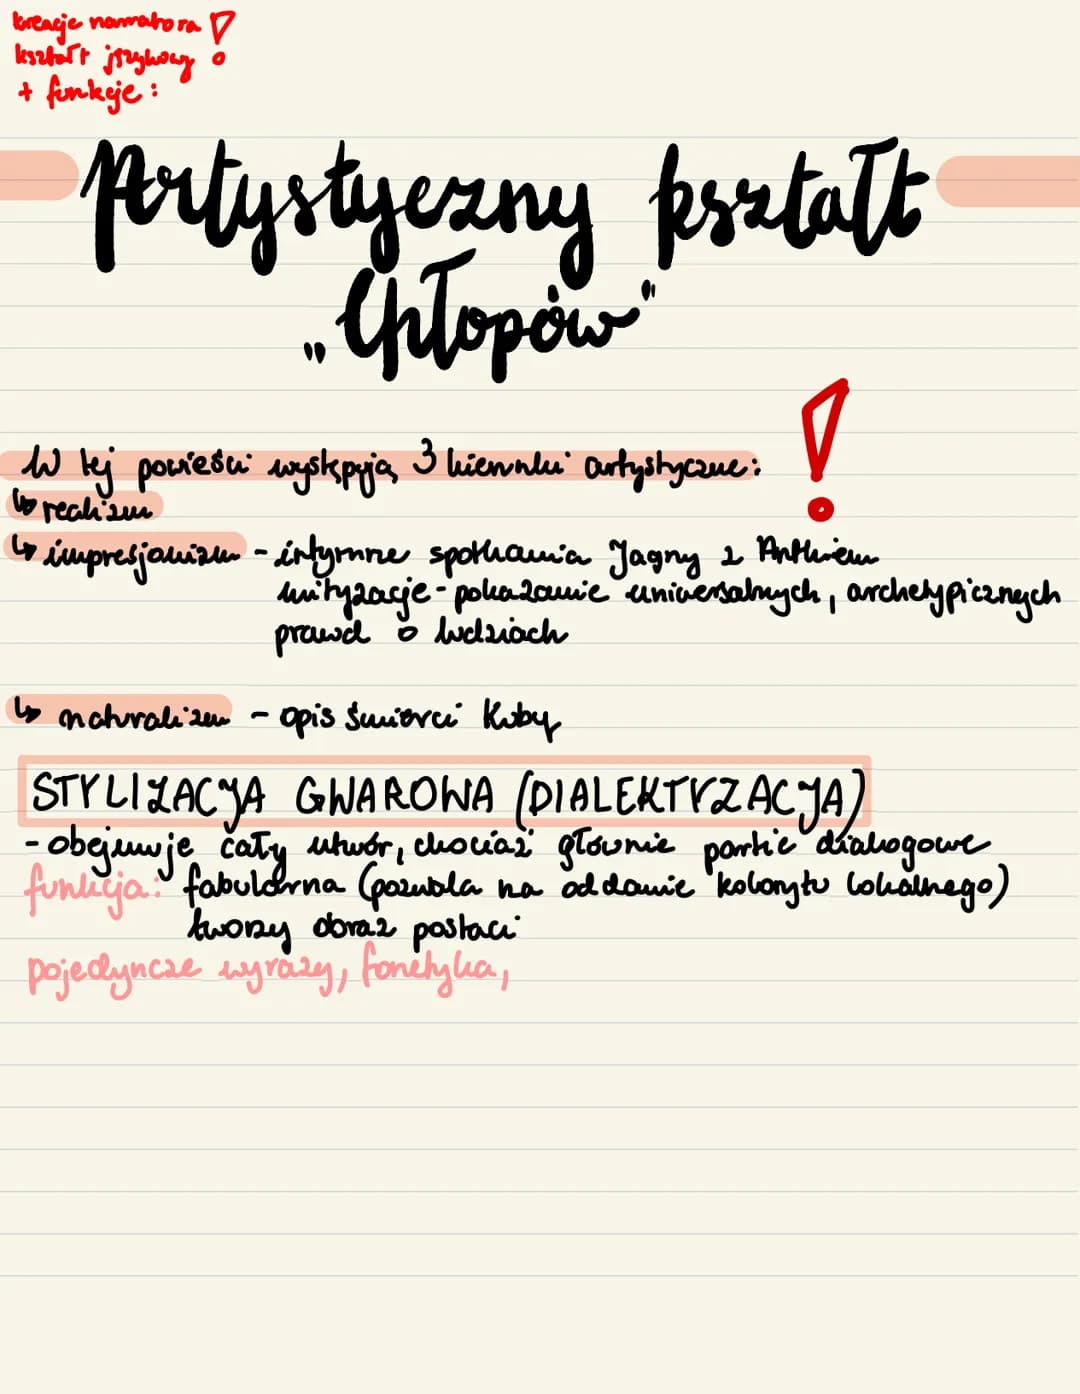 kreacje narratora !
kształt językowy
+ funkcje:
Artystyczny kształt
„Chłopów"
W tej powieści występują 3 kierunki artystyczne:
↳ realizm
↳ impresjonizm - intymne spotkania Jagny z Antkiem
mityzacje - pokazanie uniwersalnych, archetypicznych
prawd o ludziach
↳ naturalizm - opis śmierci Kuby
STYLIZACJA GWAROWA (DIALEKTYZACJA)
- obejmuje cały utwór, chociaż głównie partie dialogowe
funkcja: fabularna (pozwala na oddanie kolorytu lokalnego)
tworzy obraz postaci
pojedyncze wyrazy, fonetyka,